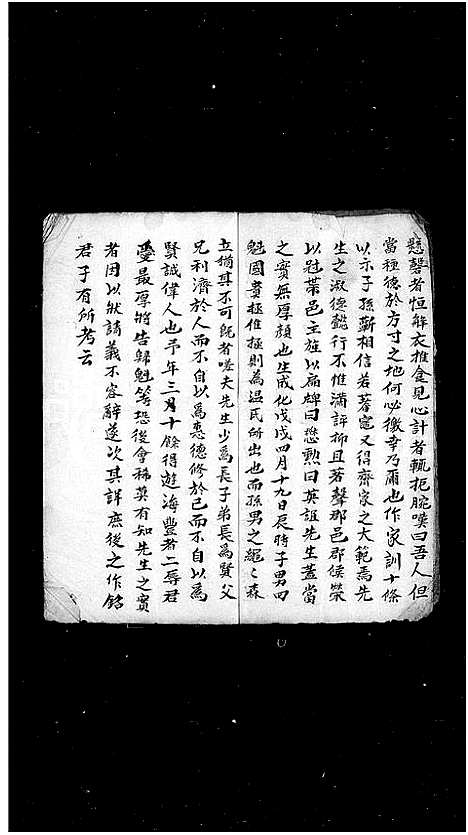 懸罄者恒解衣推食見心計者輒扼腕嘆曰吾人但
當種德於方寸之地何必徼幸乃爾也作家訓十條
以示子孫蘄相信若蓍龜又得齊家之大範焉先
生之淑德懿行不惟滿譁抑且著聲郡邑郡侯榮
以冠帶邑主旌以扁牌曰懋勳曰英誼先生蓋當
之實無厚顏也生成化戊戌四月十九日辰時子男四
魁國賓極惟極則為温氏所出也而孫男之繩〻森
立猶其不可旣者嗟夫先生少為長子弟長為賢父
兄利濟於人而不自以為惠德修於己而不自以為
賢誠偉人也予年三月十餘得遊海豐者二辱君
愛最厚將告歸魁等恐後會稀莫有知先生之實
者因以狀請義不容辭遂次其詳庶後之作銘
君子有所考云